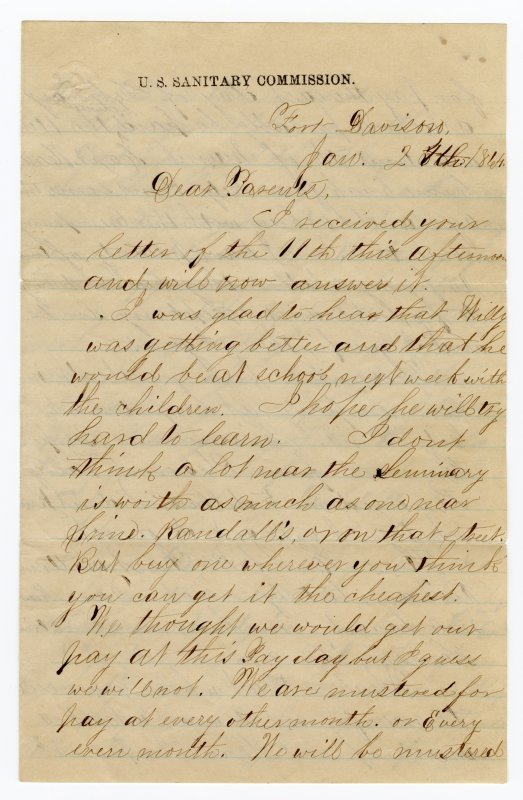 U. S. SANITARY COMMISSION.
Fort Davison,
Jan. 1864
Dear Parents,
I received your
letter of the 11th this afternoon
and will now answer it.
I was glad to hear that Willy
was getting better and that he
would be at school next week with
the children. I hope he will try
hard to learn. I dont
think a lot near the Seminary
is worth as much as one near
Randall's, or on that street.
But buy one wherever you think
you can get it the cheapest.
We thought we would get our
pay at this Pay day but I guess
we will not. We are mustered for
pay at every other month. or Every
even month. We will be mustered